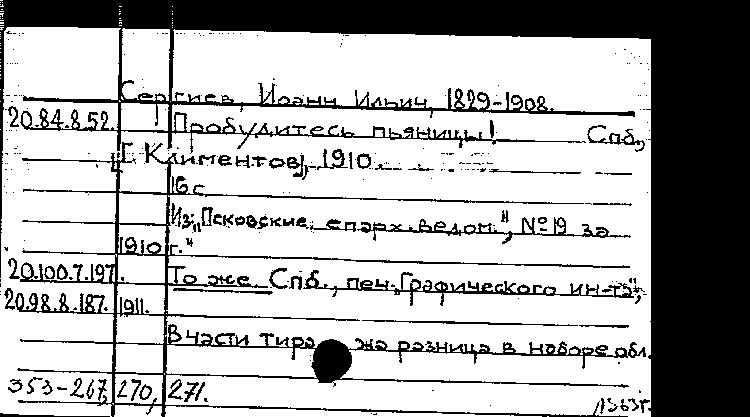 Сергиев, Иоанн Ильич, 1829-1908.
20.84.8.52. ! Пробудитесь пьяницы! Спб.,
[Климентов], 1910.
16 с
Из „Псковские епарх. ведом.", № 19 за
1910 г."
20.100.7.197. То же. Спб., печ. „Графического ин-та",
20.98.8.187. 1911.
В части тиража разница в наборе обл.
353-267, 270, 271.